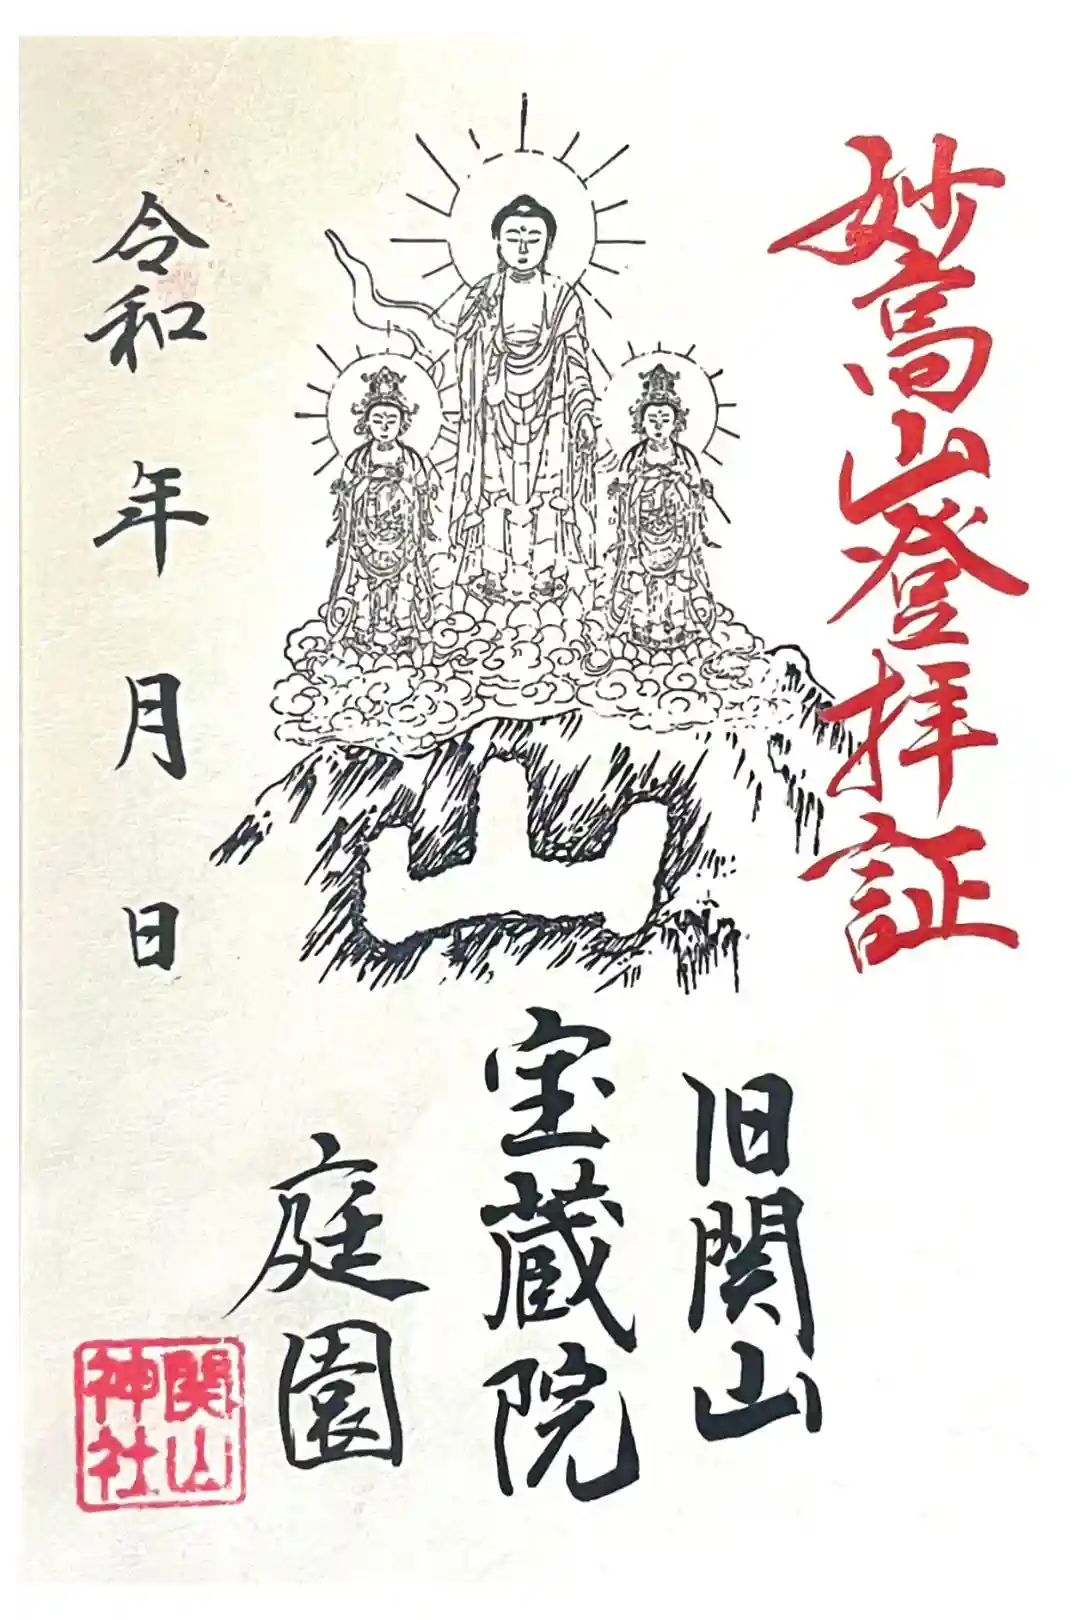 妙高山登拝証
旧関山
宝蔵院
庭園
令和 年 月 日
関山
神社